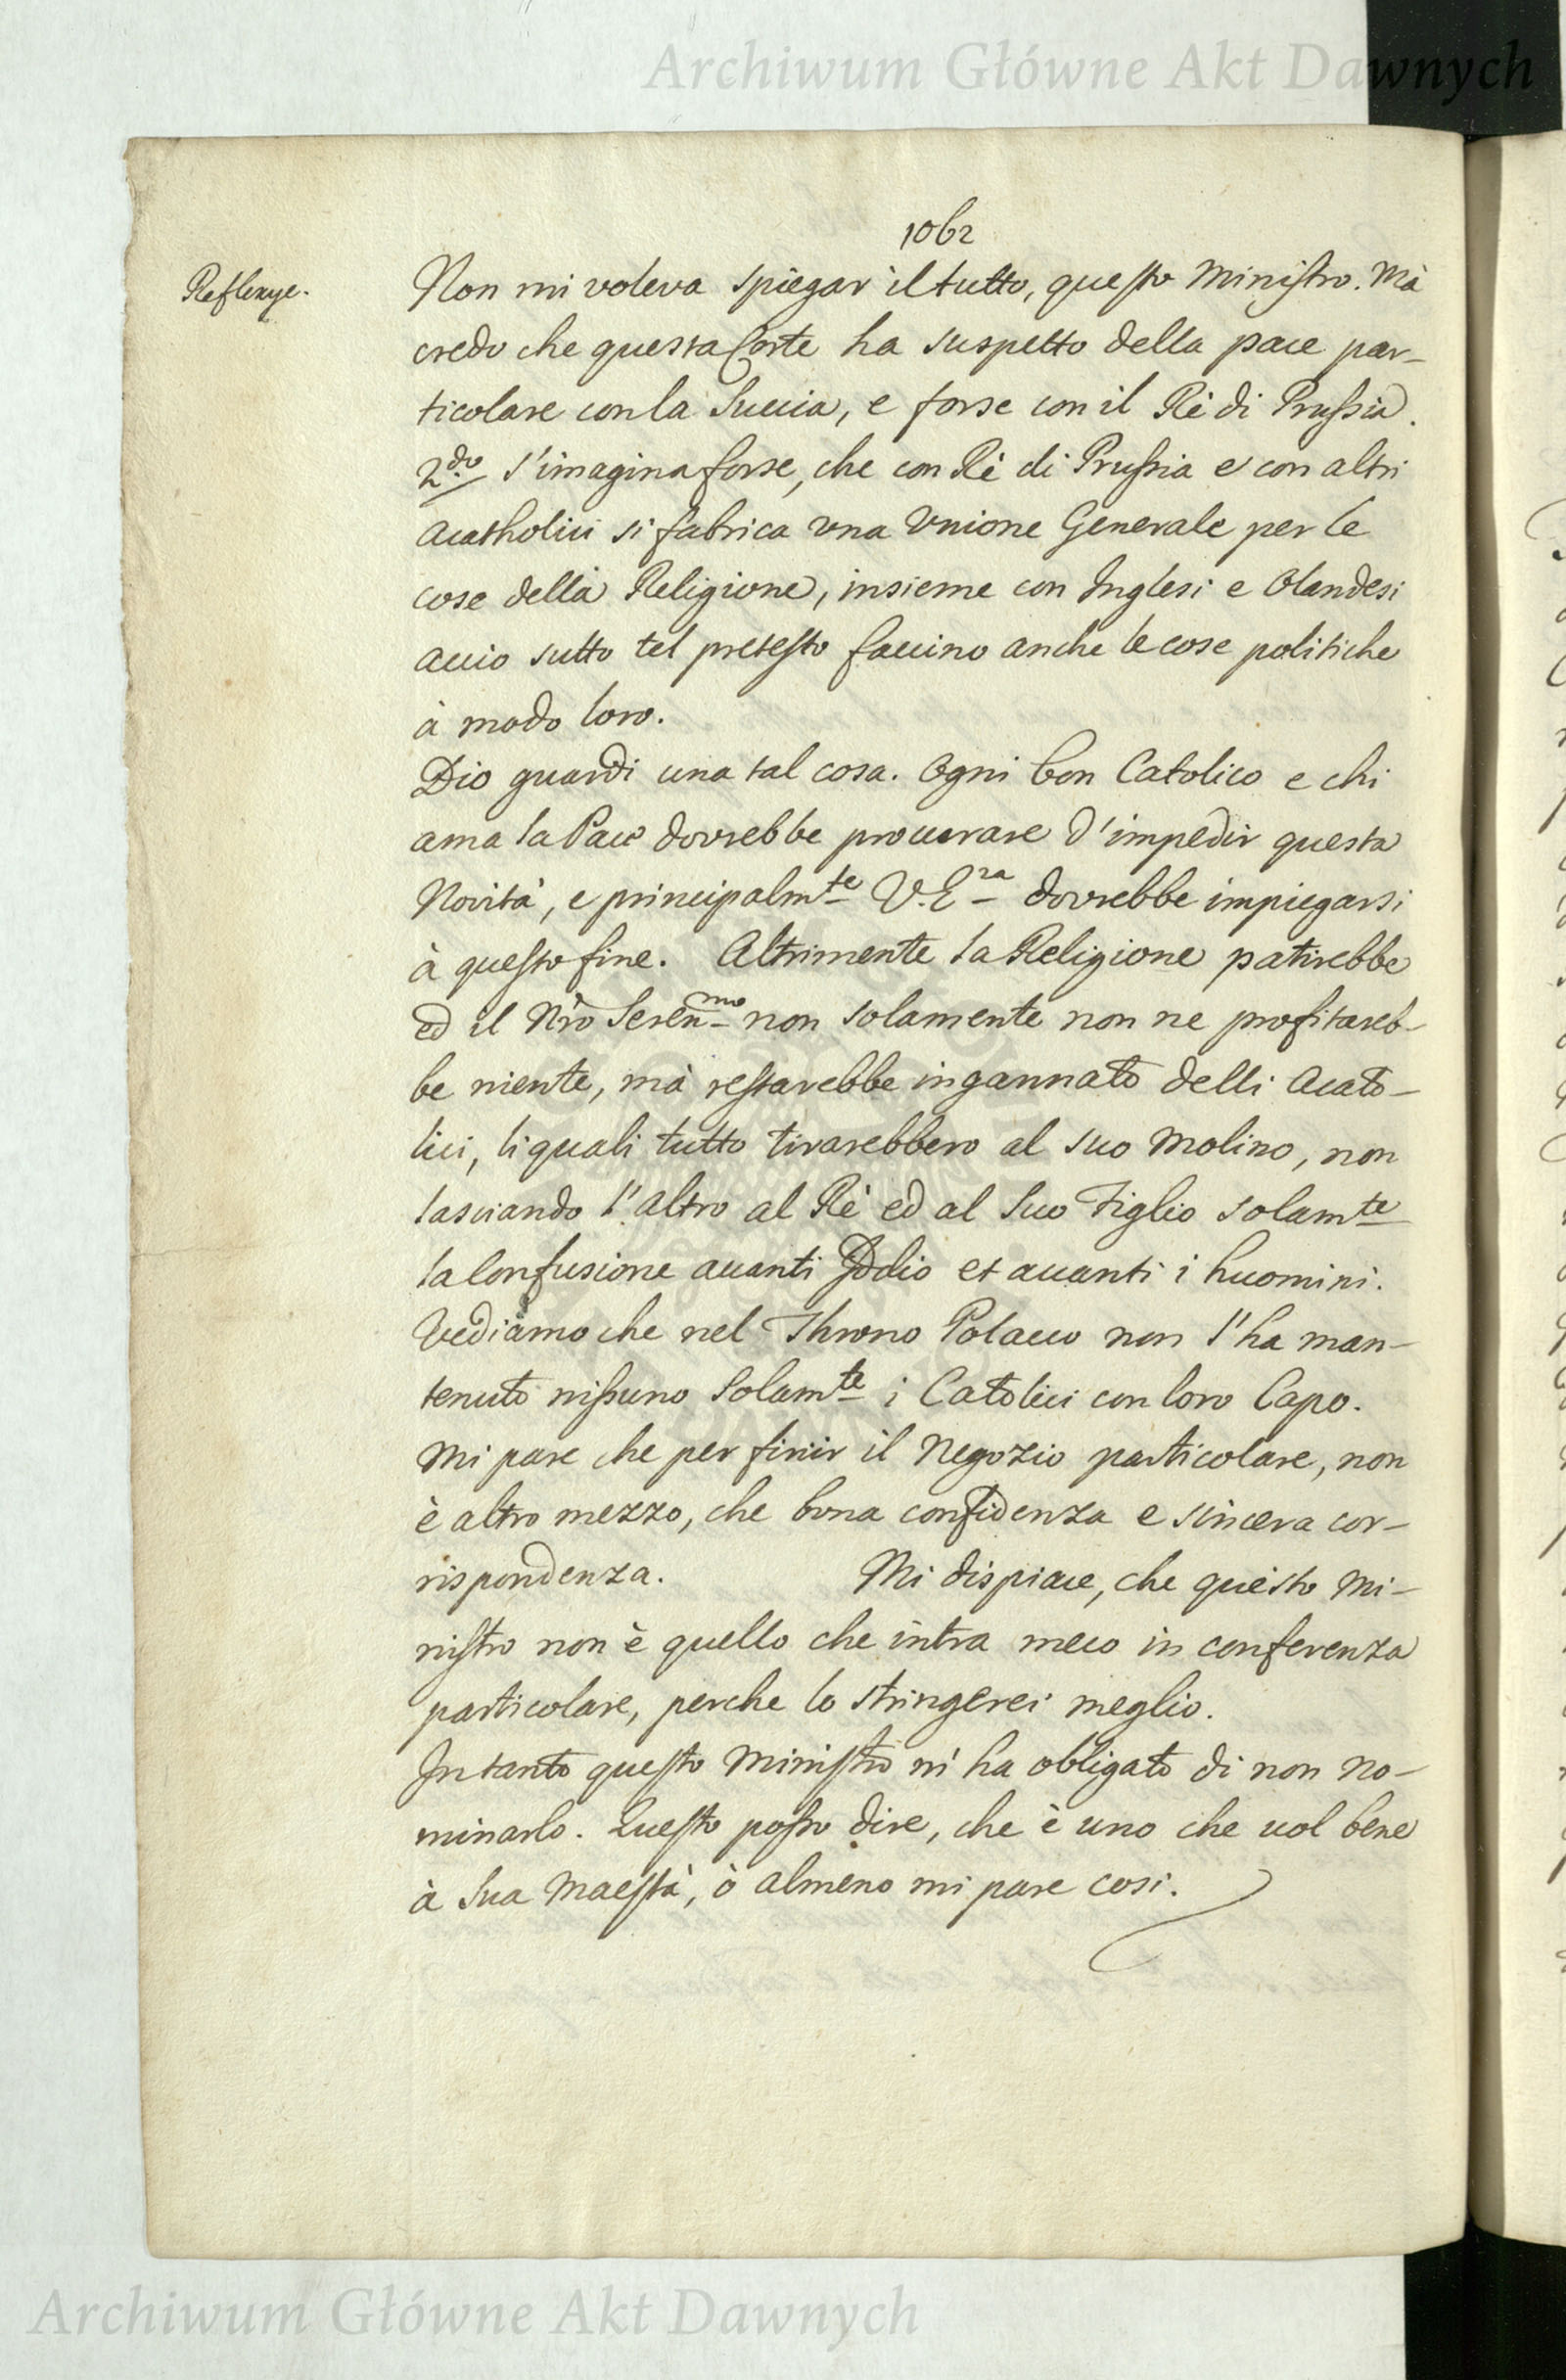 Archiwum Główne Akt Dawnych
1062
Reflexye.
Non mi voleva spiegar il tutto, questo Ministro. Mà
credo che questa Corte ha suspetto della pace par-
ticolare con la Suecia, e forse con il Rè di Prussia.
2do s'imagina forse, che con Rè di Prussia e con altri
Acatholici si fabrica una Unione Generale per le
cose della Religione, insieme con Inglesi e Olandesi
accio sutto tel pretesto faccino anche le cose politiche
à modo loro.
Dio guardi una tal cosa. Ogni bon Catolico e chi
ama la Pace dovrebbe procurare d'impedir questa
Novità, e principalmte V.Era dovrebbe impiegarsi
à questo fine. Altrimente la Religione patirebbe
ed il Nro Serenmo non solamente non ne profitareb-
be niente, mà restarebbe ingannato delli Acato-
lici, li quali tutto tirarebbero al suo molino, non
lasciando l'altro al Rè ed al Suo Figlio solamte
la Confusione avanti Iddio et avanti i huomini.
Vediamo che nel Throno Polacco non l'ha man-
tenuto nissuno Solamte i Catolici con loro Capo.
Mi pare che per finir il Negozio particolare, non
è altro mezzo, che bona confidenza e sincera cor-
rispondenza. Mi dispiace, che questo Mi-
nistro non è quello che intra meco in conferenza
particolare, perche lo stringerei meglio.
In tanto questo Ministro m'ha obligato di non no-
minarlo. Questo posso dire, che è uno che vol bene
à Sua Maestà, ò almeno mi pare cosi.
Archiwum Główne Akt Dawnych